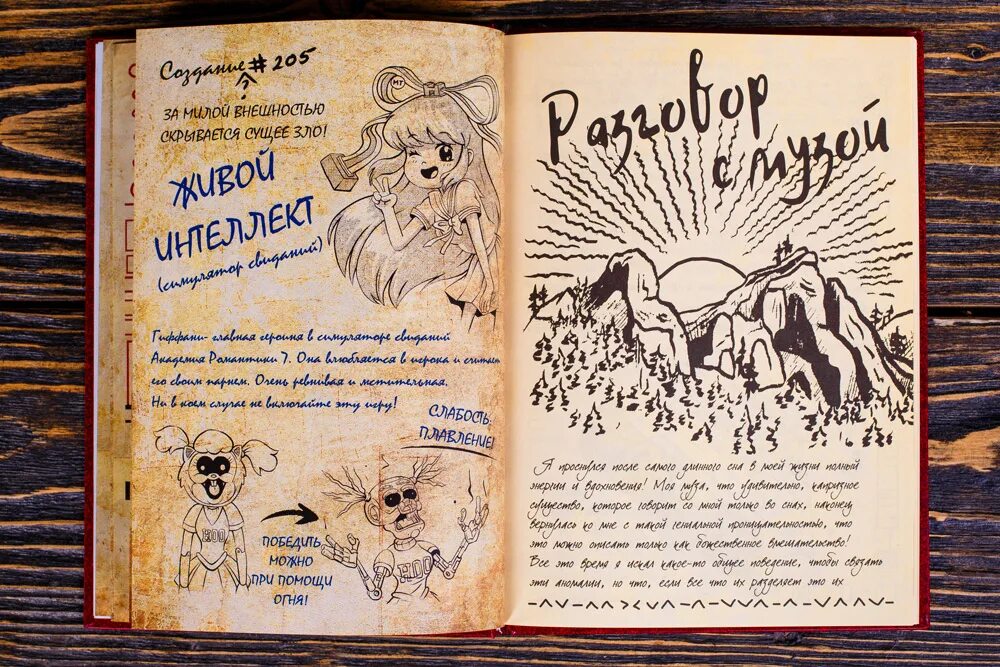 Создание # 205
?
ЗА МИЛОЙ ВНЕШНОСТЬЮ
СКРЫВАЕТСЯ СУЩЕЕ ЗЛО!
ЖИВОЙ
ИНТЕЛЛЕКТ
(симулятор свиданий)
МТ
Гиффани- главная героиня в симуляторе свиданий
Академия Романтики 7. Она влюбляется в игрока и считает
его своим парнем. Очень ревнивая и мстительная.
Ни в коем случае не включайте эту игру!
СЛАБОСТЬ:
ПЛАВЛЕНИЕ!
HOO
ПОБЕДИТЬ
МОЖНО
ПРИ ПОМОЩИ
ОГНЯ!
HOO
Разговор
с музой
Я проснулся после самого длинного сна в моей жизни полный
энергии и вдохновения! Моя муза, что удивительно, капризное
существо, которое говорит со мной только во снах, наконец
вернулась ко мне с такой гениальной проницательностью, что
это можно описать только как божественное вмешательство!
Все это время я искал какое-то общее поведение, чтобы связать
эти аномалии, но что, если все что их разделяет это их